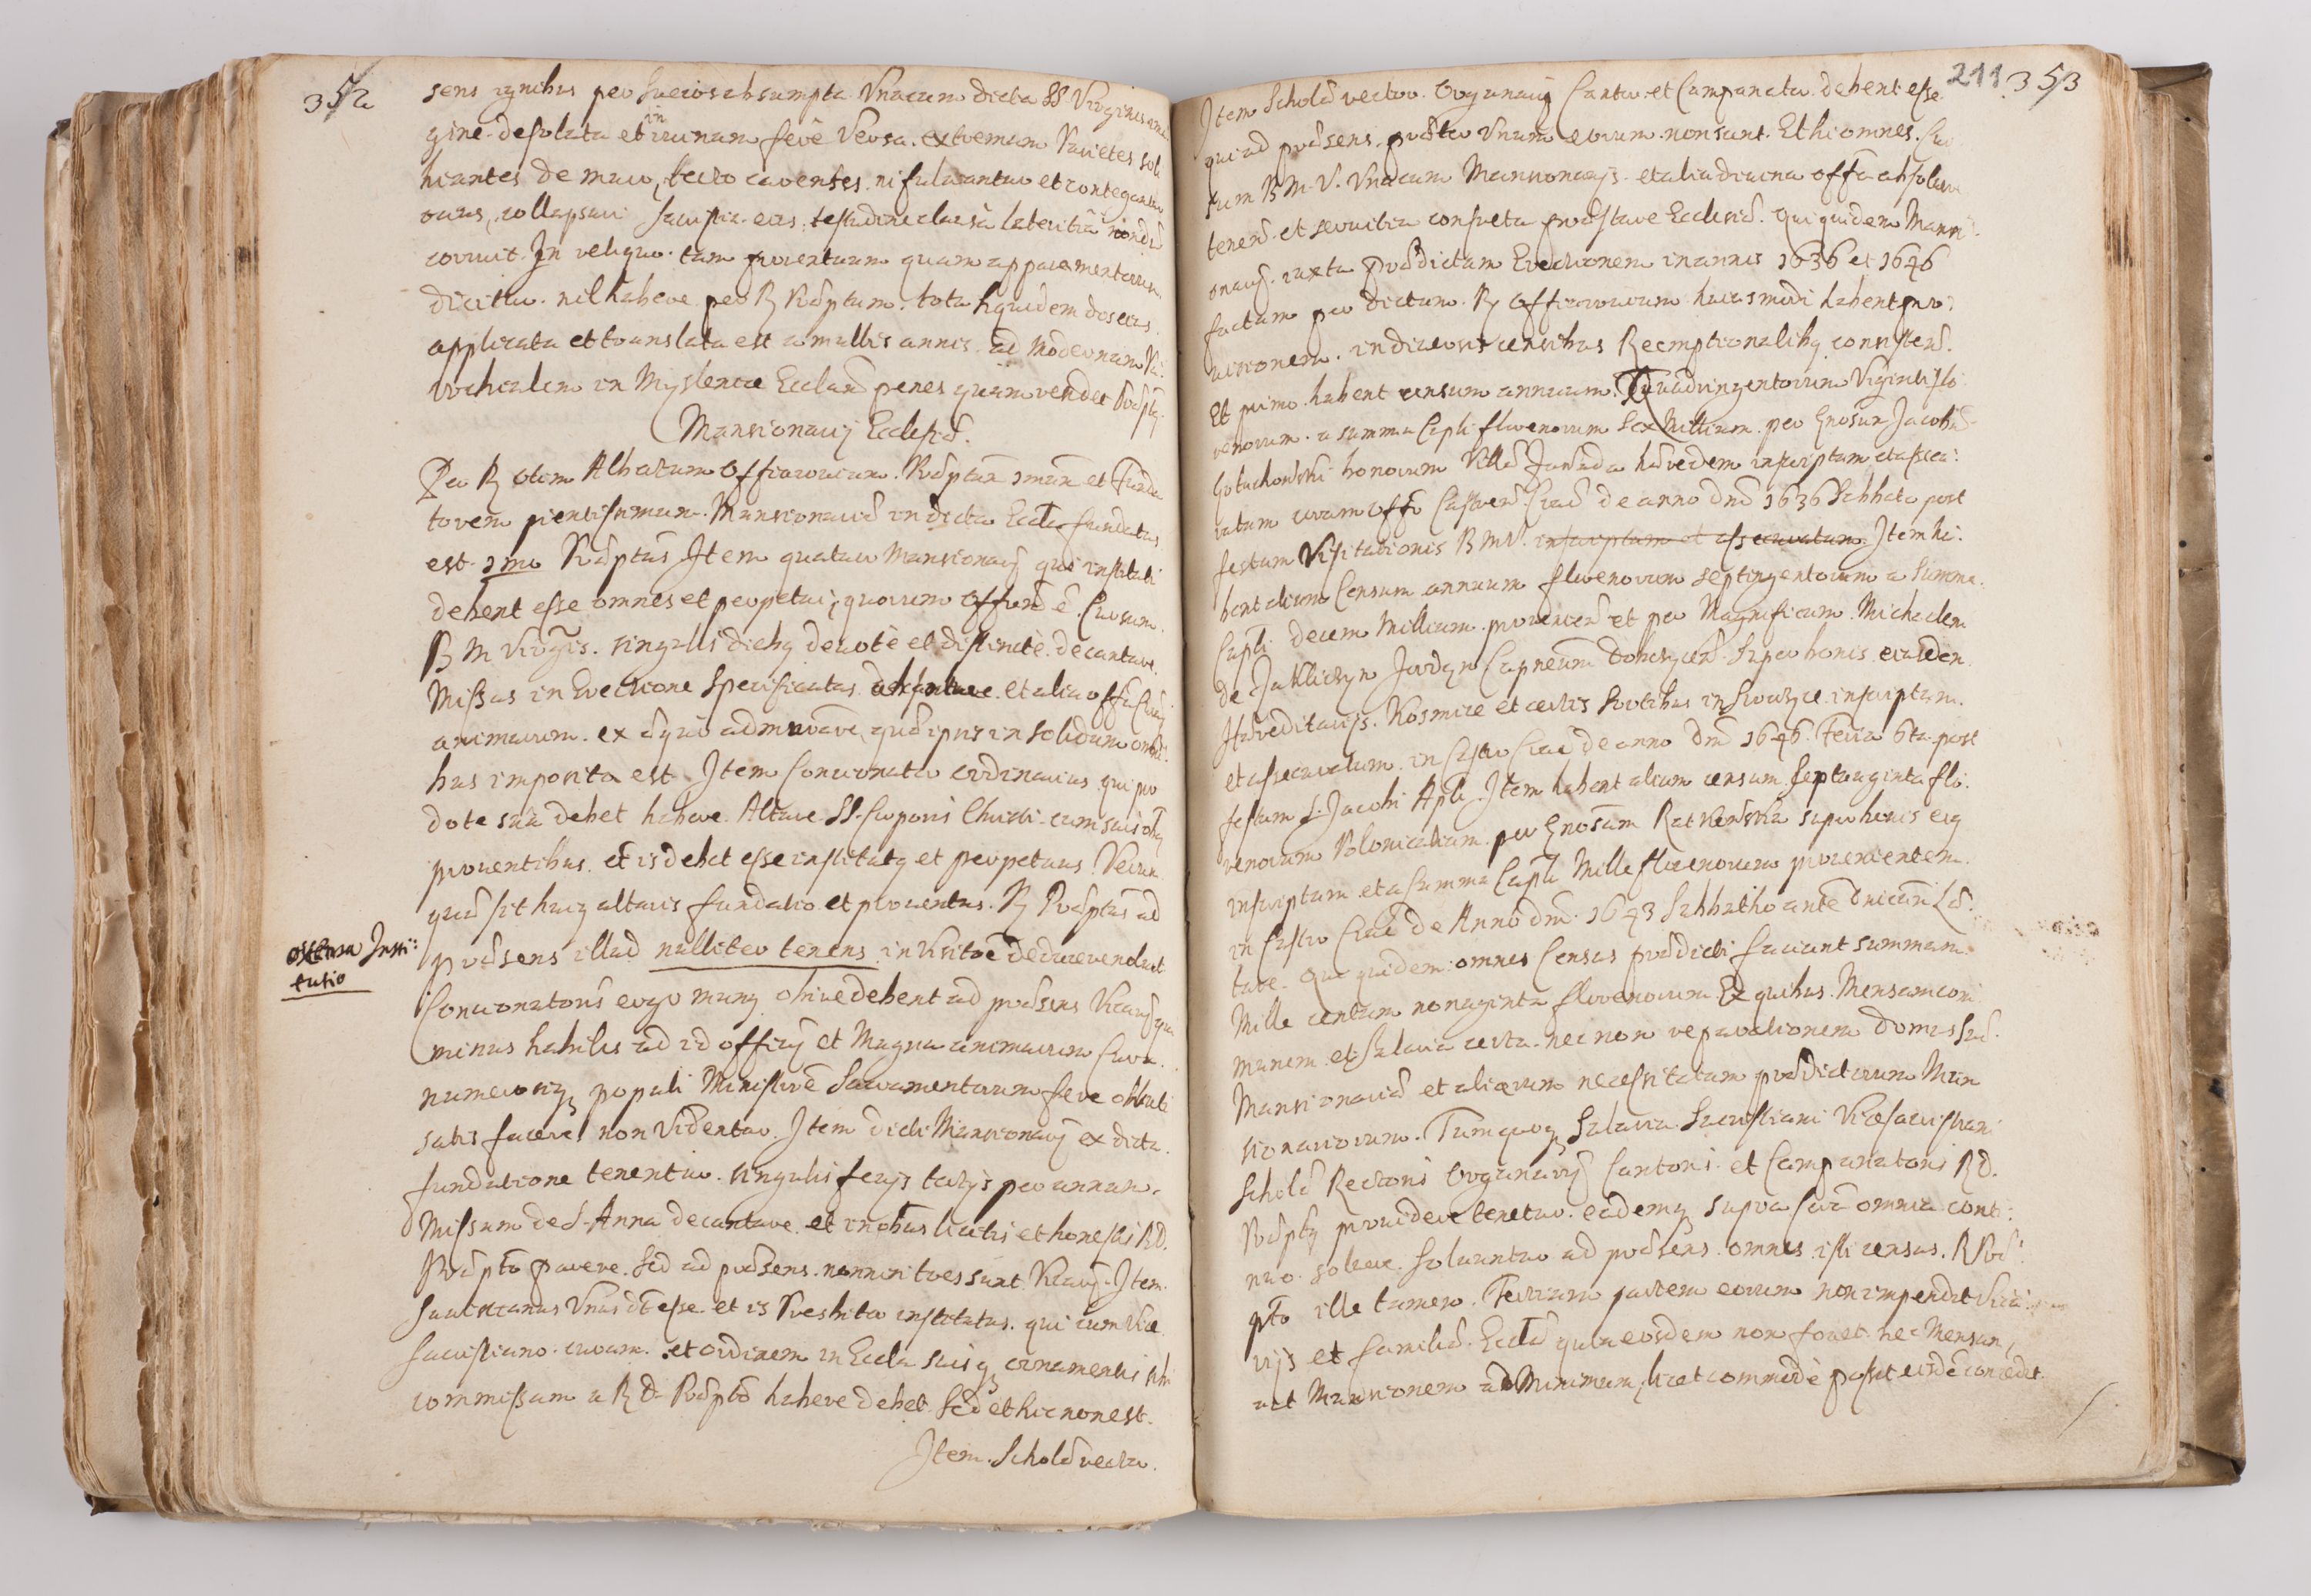 352
sens ignibus per Suecos absumpta Unacum dicta SS Virginis ima
gine desolata et in ruinam ferè Versa. extremum Parietes soli
hiantes de muro, tecto carentes ni fulciantur et contegantur
collapsuri Sacristia eius testudine clausa lateritiâ nondum
corruit. In reliquo tam proventuum quam apparamentorum
dicitur nil habere per R Præptum. tota siquidem dos eius
applicata et translata est a multis annis ad modernam Pa
rochialem in Myslenice Ecclam penes quam
Mansionarij Ecclesiæ.
Per R olim Albatum Officiorum. Præptum 1mum et Funda
torem pientissimum. Mansionariæ in dicta Eccla fundatus
est 1mo Præptus Item quatuor Mansionarij qui instituti
debent esse omnes et perpetui, quorum Offum ẽ Cursum
B M Virgis. singulis diebq devotè et distinctè decantare
Missas in Erectione Specificatas absolvere et alia offa Curæ
animarum ex æquo administrare, quæ ipsis in solidum omni
bus imposita est. Item Concionator ordinarius qui pro
dote sua debet habere Altare SS. Corporis Christi cum suis
proventibus. et is debet esse institutq et perpetuus Verum
quæ sit huiq altaris fundatio et proventus. R Præptus ad
præsens illud nulliter tenens in Visitõe
ostensa Insti:
tutio
Concionatoris ergo munq obire debent ad præsens Vicarij qui
minus habiles ad id officij et Magna animarum Cura.
numerosiq populi Ministrẽ Sacramentorum fere
satis facere non Videntur. Item dicti Mansionarij ex dicta
fundatione tenentur. singulis ferijs tertijs per annum
Missam de S. Anna decantare et in obus licitis et honestis RD.
Præpto parere. Sed ad præsens nonnisi tres sunt Vicarij. Item
Sacristianus Unus dt esse et is Presbiter institutus. qui cum Vice
sacristiano curam et ordinem in Eccla suisq ornamentis sibi
commissam a R D. Præpto habere debet. Sed et hic non est.
Item Scholæ rector.
211 353
Item Scholæ rector Organarij Cantor et Campanator debent esse
qui ad præsens præter unum eorum non sunt. Et hi omnes Cur
sum B M V. Unacum Mansionarijs et alia divina offa absolvere
tenent et servitia consueta præstare Ecclesiæ. Qui quidem Mansi
onarij juxta prædictam Erectionem in annis 1636 et 1646
factam per dictum R Officiorum huiusmodi habent pro:
visionem. in diversis censibus Reemptionalibq consisten.
Et primo habent censum annuum Quadringentorum Viginti flo
renorum a summa Capli florenorum Sex Millium per Gnosum Jacobum
Goluchowski bonorum Villæ Jawada hæredem inscriptum et assecu:
ratum coram offo Castren Crac de anno dni 1636 Sabbato post
festum Visitationis B M V. inscriptum et assecuratum Item ha:
bent alium Censum annuum florenorum Septingentorum a Summa
Capli decem Millium provenien et per Magnificum Michaelem
de Zakliczyn Jordan Capneum Dobczycen super bonis eiusdem
Hæreditarijs Kosmice et certis Sortibus in Siercyce inscriptum
et assecuratum in Castro Crac de anno Dni 1646 Feria 6ta post
festum S. Jacobi Apli. Item habent alium censum Septuaginta flo
renorum Polonicalium per Gnosum super bonis eiq
inscriptum et a summa Capli Mille florenorum provenientem
in Castro Crac de Anno dni 1643 Sabbatho ante dnicam Læ
tare. Qui quidem omnes Census prædicti faciunt summam
Mille centum nonaginta florenorum Ex quibus Mensam com
munem et salaria certa nec non reparationem domus suæ
Mansionariæ et aliarum necessitatum prædictorum Man
sionariorum. Tum quoq Salaria Sacristiani Vicesacristiani
Scholæ Rectoris Organarij Cantoris et Campanatoris RD.
Præptq providere tenetur eademq supra scta omnia conti:
nuo solvere. Solvuntur ad præsens omnes isti census R Præ:
pto ille tamen. Tertiam partem eorum non impendit Vica
rijs et familiæ Ecclæ quia eosdem non fovet nec Mensam,
aut Mansionem ad Minimum, licet commodè posset eisdẽ concedit.